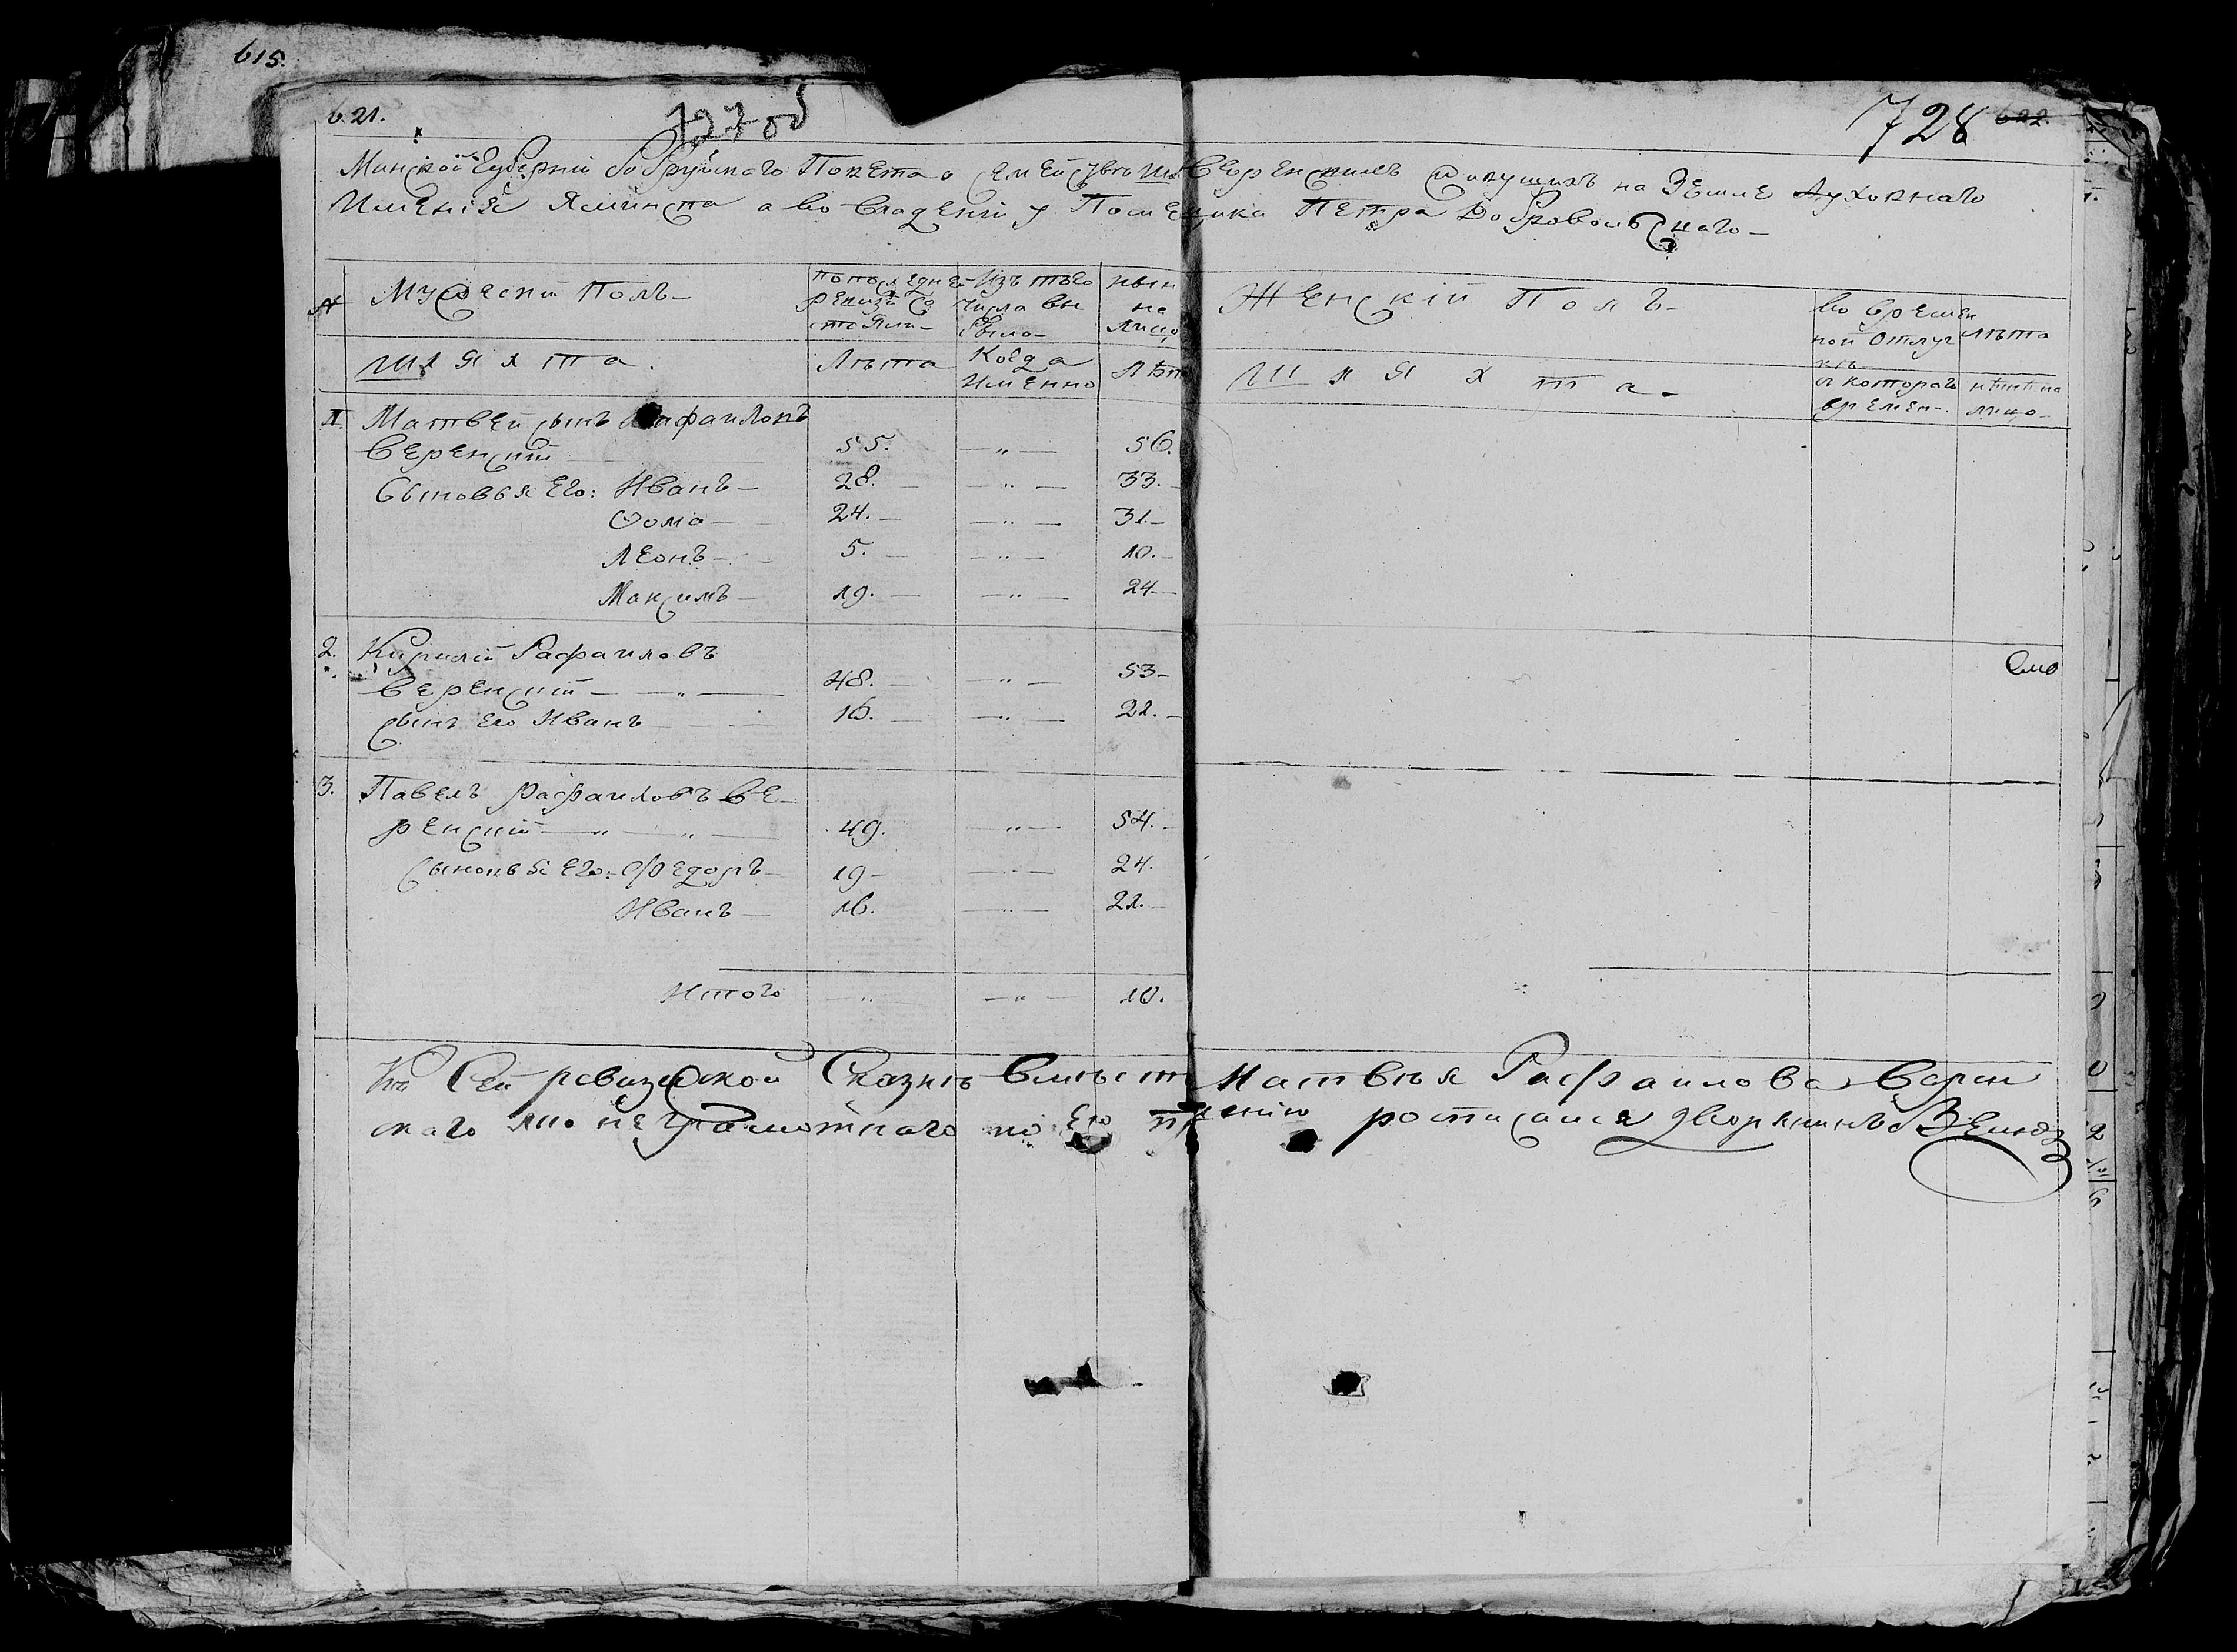 615.
621.
728 622.
Минской Губернии Бобруйскаго Повета о семействе Шл. Веренскихъ живущихъ на Земле Духовнаго
Имения Яминска а во владении у Помещика Петра Добровольскаго
№ Мужескій Полъ Попоследней ревизіи состояли Изъ того числа выбыло ныне на лицо Женскій Полъ Во временной отлучке лѣта
Шляхта. Лѣта Когда именно Лѣта Шляхта. съ котораго времен. ныне на лицо
1. Матвей сынъ Рафаиловъ
Веренскій 55. 56.
Сыновья Его: Иванъ 28. 33.
Фома 24. 31.
Леонъ 5. 10.
Максимъ 19. 24.
2. Кирилій Рафаиловъ
Веренскій 48. 53
сынъ Его Иванъ 16. 21.
3. Павелъ Рафаиловъ Ве-
ренскій 49. 54.
Сыновья Его: Федоръ 19 24.
Иванъ 16. 21.
Итого 10.
Къ Сей ревизской Сказке вместо Матвея Рафаилова Верен
скаго яко неграмотнаго по Его прошению росписался дворянинъ